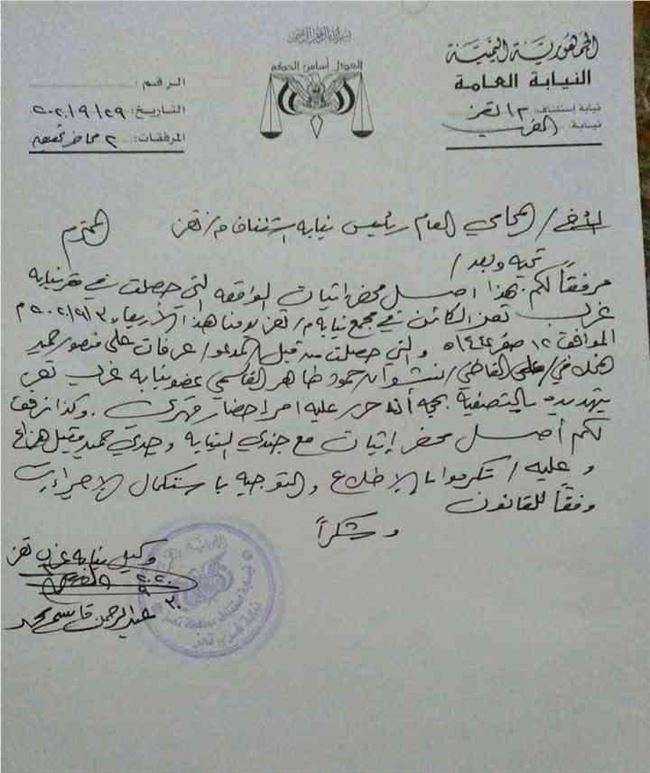 بسم الله الرحمن الرحيم
الجمهورية اليمنية
النيابة العامة
نيابة إستئناف: م/ تعز
نيابة: الغرب
العدل أساس الحكم
الرقم:
التاريخ: ٢٠٢٠/٩/٢٩
المرفقات: ٢ محاضر
الأخ/ المحامي العام رئيس نيابة استئناف م/ تعز المحترم
تحية وبعد/
مرفقاً لكم بهذا أصل محضر اثبات الواقعة التي حصلت في مقر نيابة
غرب تعز الكائن في مجمع نيابة م/ تعز يومنا هذا الأربعاء
الموافق ١٢ صفر ١٤٤٢ه والتي حصلت من قبل المدعو/ عرفات علي منصور حمير
على القاضي/ نشوان حمود طاهر القاسمي عضو نيابة غرب تعز
بتهديده بالتصفية بحجة أنه حرر عليه امر احضار قهري. وكذا نرفق
لكم أصل محضر إثبات مع جندي النيابة وجدي حميد مقبل
وعليه/ تكرموا بالإطلاع والتوجيه باستكمال الإجراءات
وفقاً للقانون
وشكراً
وكيل نيابة غرب تعز
عبدالرحمن قاسم محمد